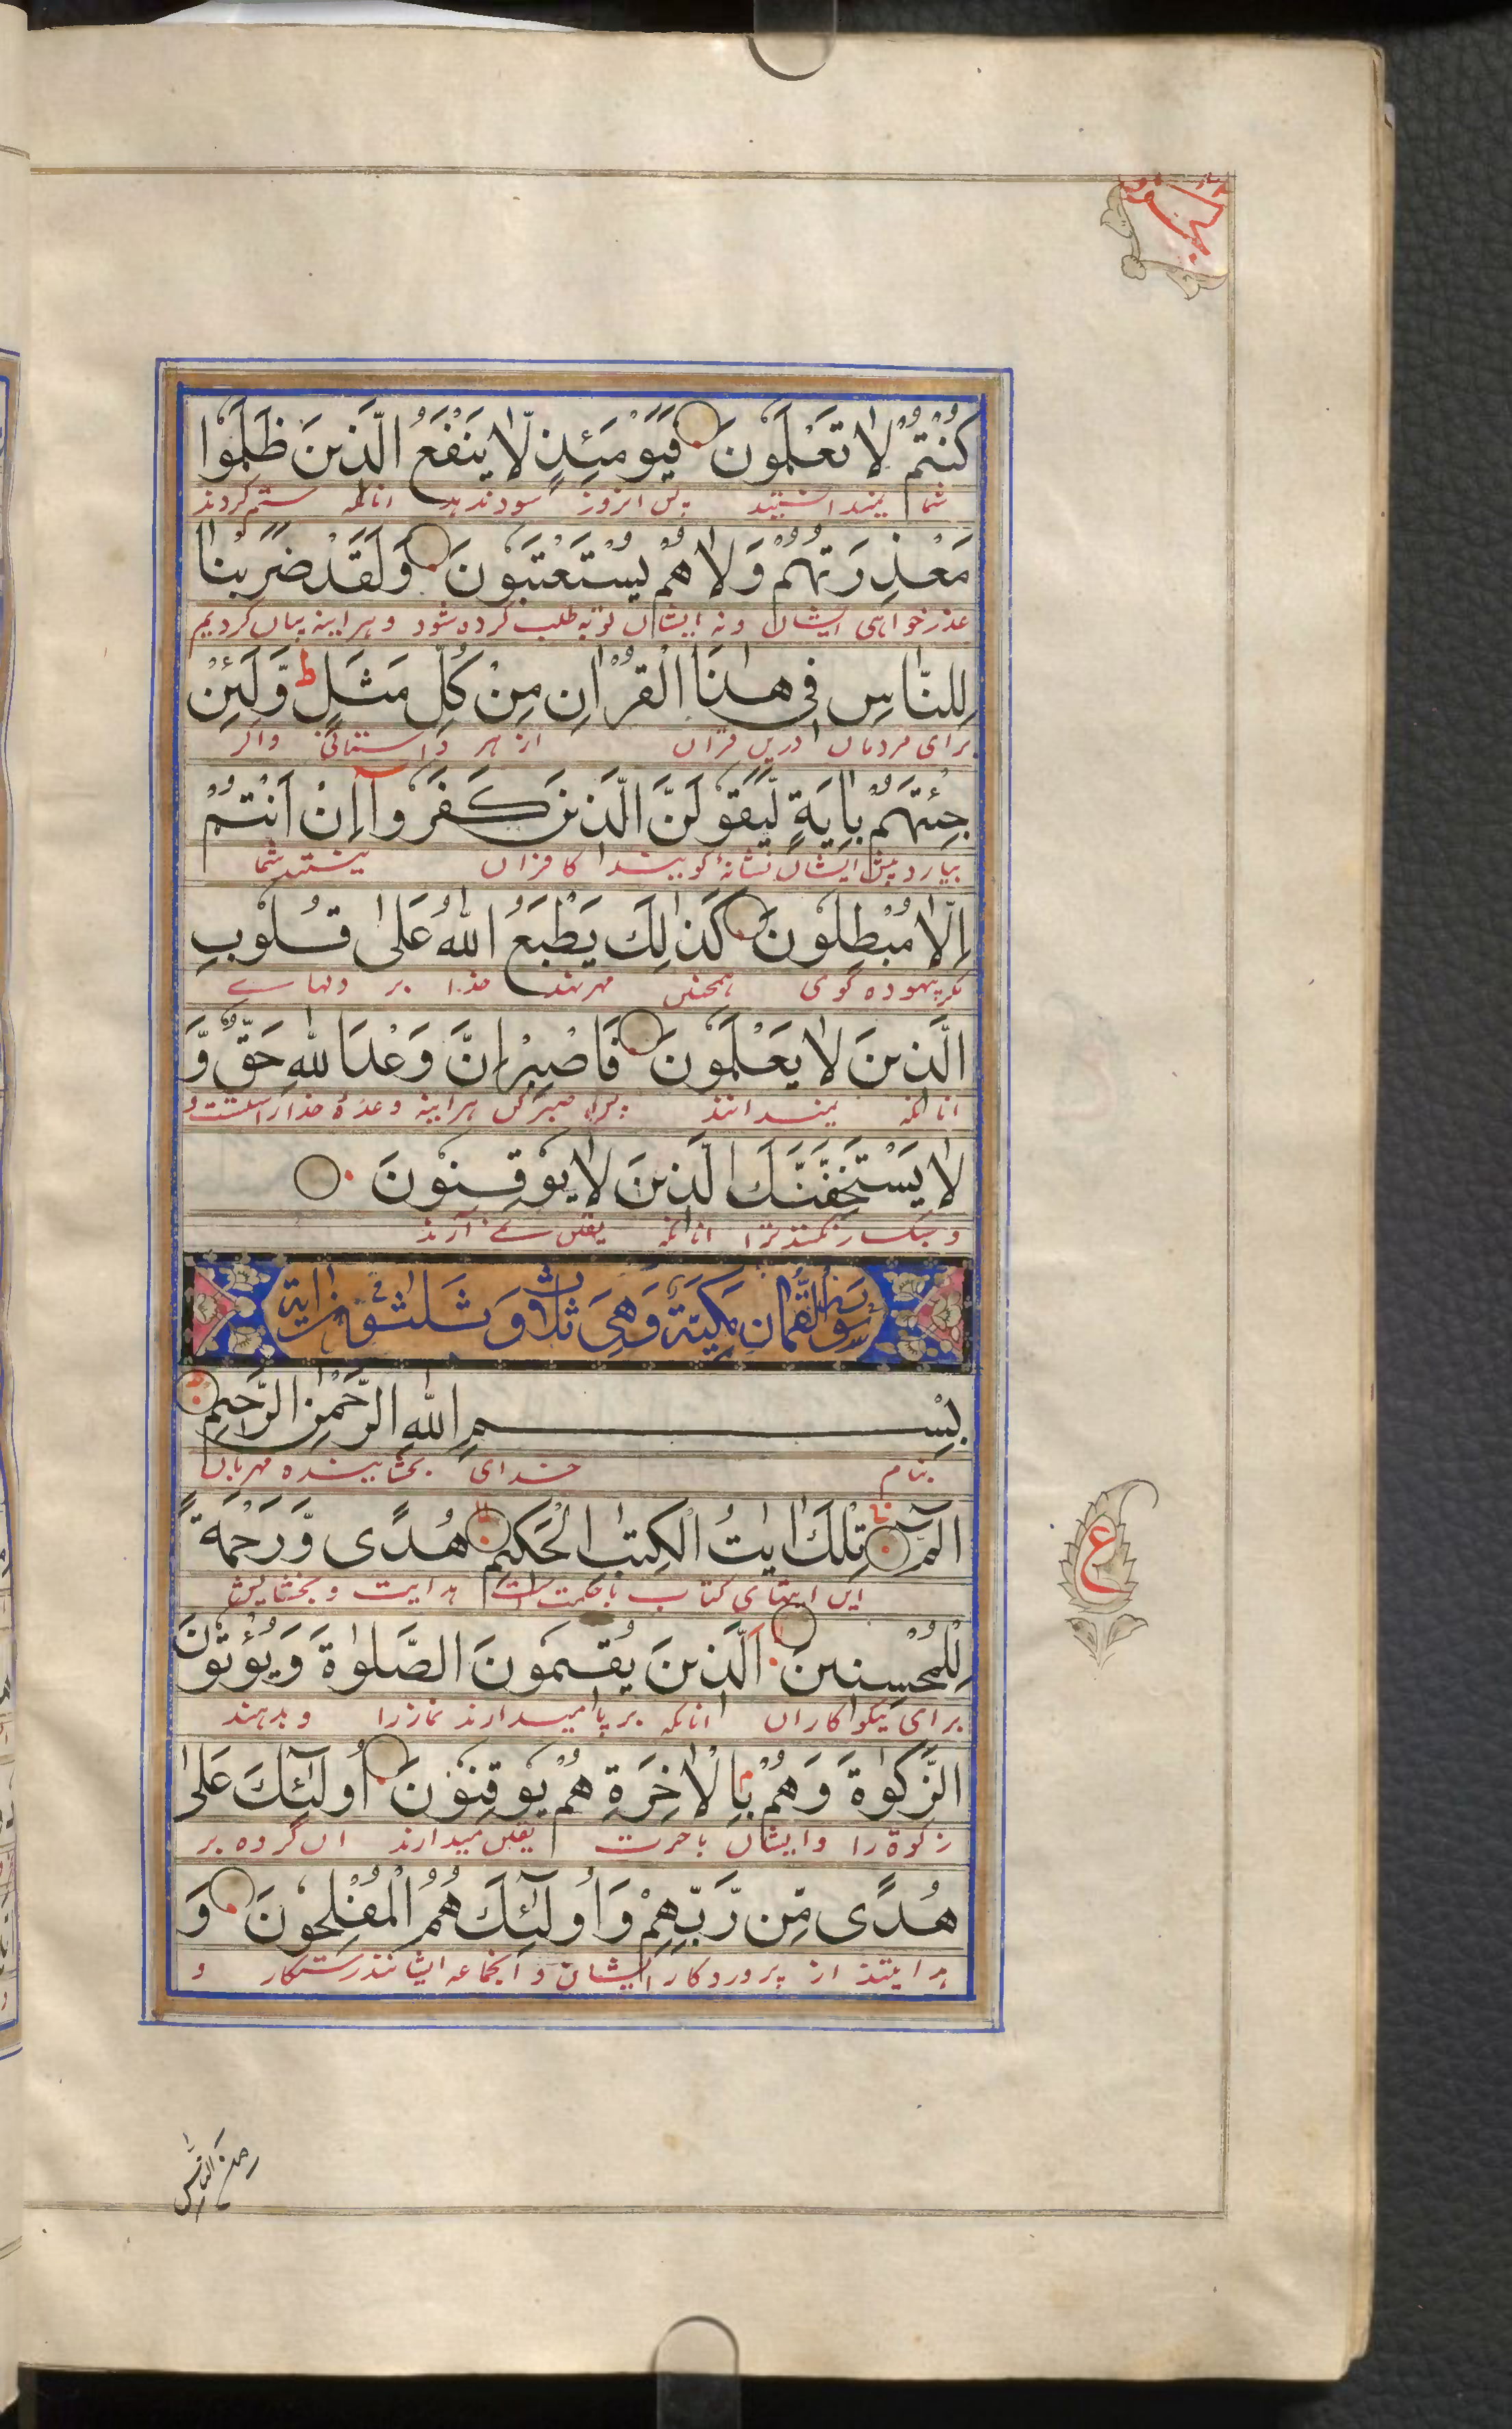 كُنْتُمْ لَا تَعْلَمُونَ فَيَوْمَئِذٍ لَّا يَنْفَعُ الَّذِينَ ظَلَمُوا
شما نمیدانستید پس انروز سود ندهد انانکه ستم کردند
مَعْذِرَتُهُمْ وَلَا هُمْ يُسْتَعْتَبُونَ وَلَقَدْ ضَرَبْنَا
عذر خواهی ایشان و نه ایشان توبه طلب کرده شود و هراینه بیان کردیم
لِلنَّاسِ فِي هٰذَا الْقُرْاٰنِ مِنْ كُلِّ مَثَلٍ ط وَّلَئِنْ
برای مردمان درین قران از هر داستانی واگر
جِئْتَهُمْ بِاٰيَةٍ لَّيَقُولَنَّ الَّذِينَ كَفَرُوا اِنْ اَنْتُمْ
بیارد پیش ایشان نشانهٔ گویند کافران نیستید شما
اِلَّا مُبْطِلُونَ كَذٰلِكَ يَطْبَعُ اللّٰهُ عَلٰى قُلُوبِ
مگر بیهوده گوی همچنین مهر نهد خدا بر دلهاے
الَّذِينَ لَا يَعْلَمُونَ فَاصْبِرْ اِنَّ وَعْدَ اللّٰهِ حَقٌّ وَّ
انانکه نمیدانند پس صبر کن هراینه وعدهٔ خدا راستست و
لَا يَسْتَخِفَّنَّكَ الَّذِينَ لَا يُوقِنُونَ
و سبکسار نکنند ترا انانکه یقین نمے آرند
سُورَةُ لُقْمَانَ مَكِّيَّةٌ وَهِيَ ثَلَاثٌ وَثَلٰثُونَ اٰيَة
بِسْمِ اللّٰهِ الرَّحْمٰنِ الرَّحِيمِ
بنام خدای بخشاینده مهربان
الٓمّٓ تِلْكَ اٰيٰتُ الْكِتٰبِ الْحَكِيمِ هُدًى وَّرَحْمَةً
این ایتهای کتاب با حکمت است هدایت و بخشایش
لِّلْمُحْسِنِينَ الَّذِينَ يُقِيمُونَ الصَّلٰوةَ وَيُؤْتُونَ
برای نیکوکاران انانکه برپا میدارند نماز را و بدهند
الزَّكٰوةَ وَهُمْ بِالْاٰخِرَةِ هُمْ يُوقِنُونَ اُولٰٓئِكَ عَلٰى
زکوة را وایشان باخرت یقین میدارند ان گروه بر
هُدًى مِّن رَّبِّهِمْ وَاُولٰٓئِكَ هُمُ الْمُفْلِحُونَ وَ
هدایتند از پروردکار ایشان و انجماعه ایشانند رستکار و
ع